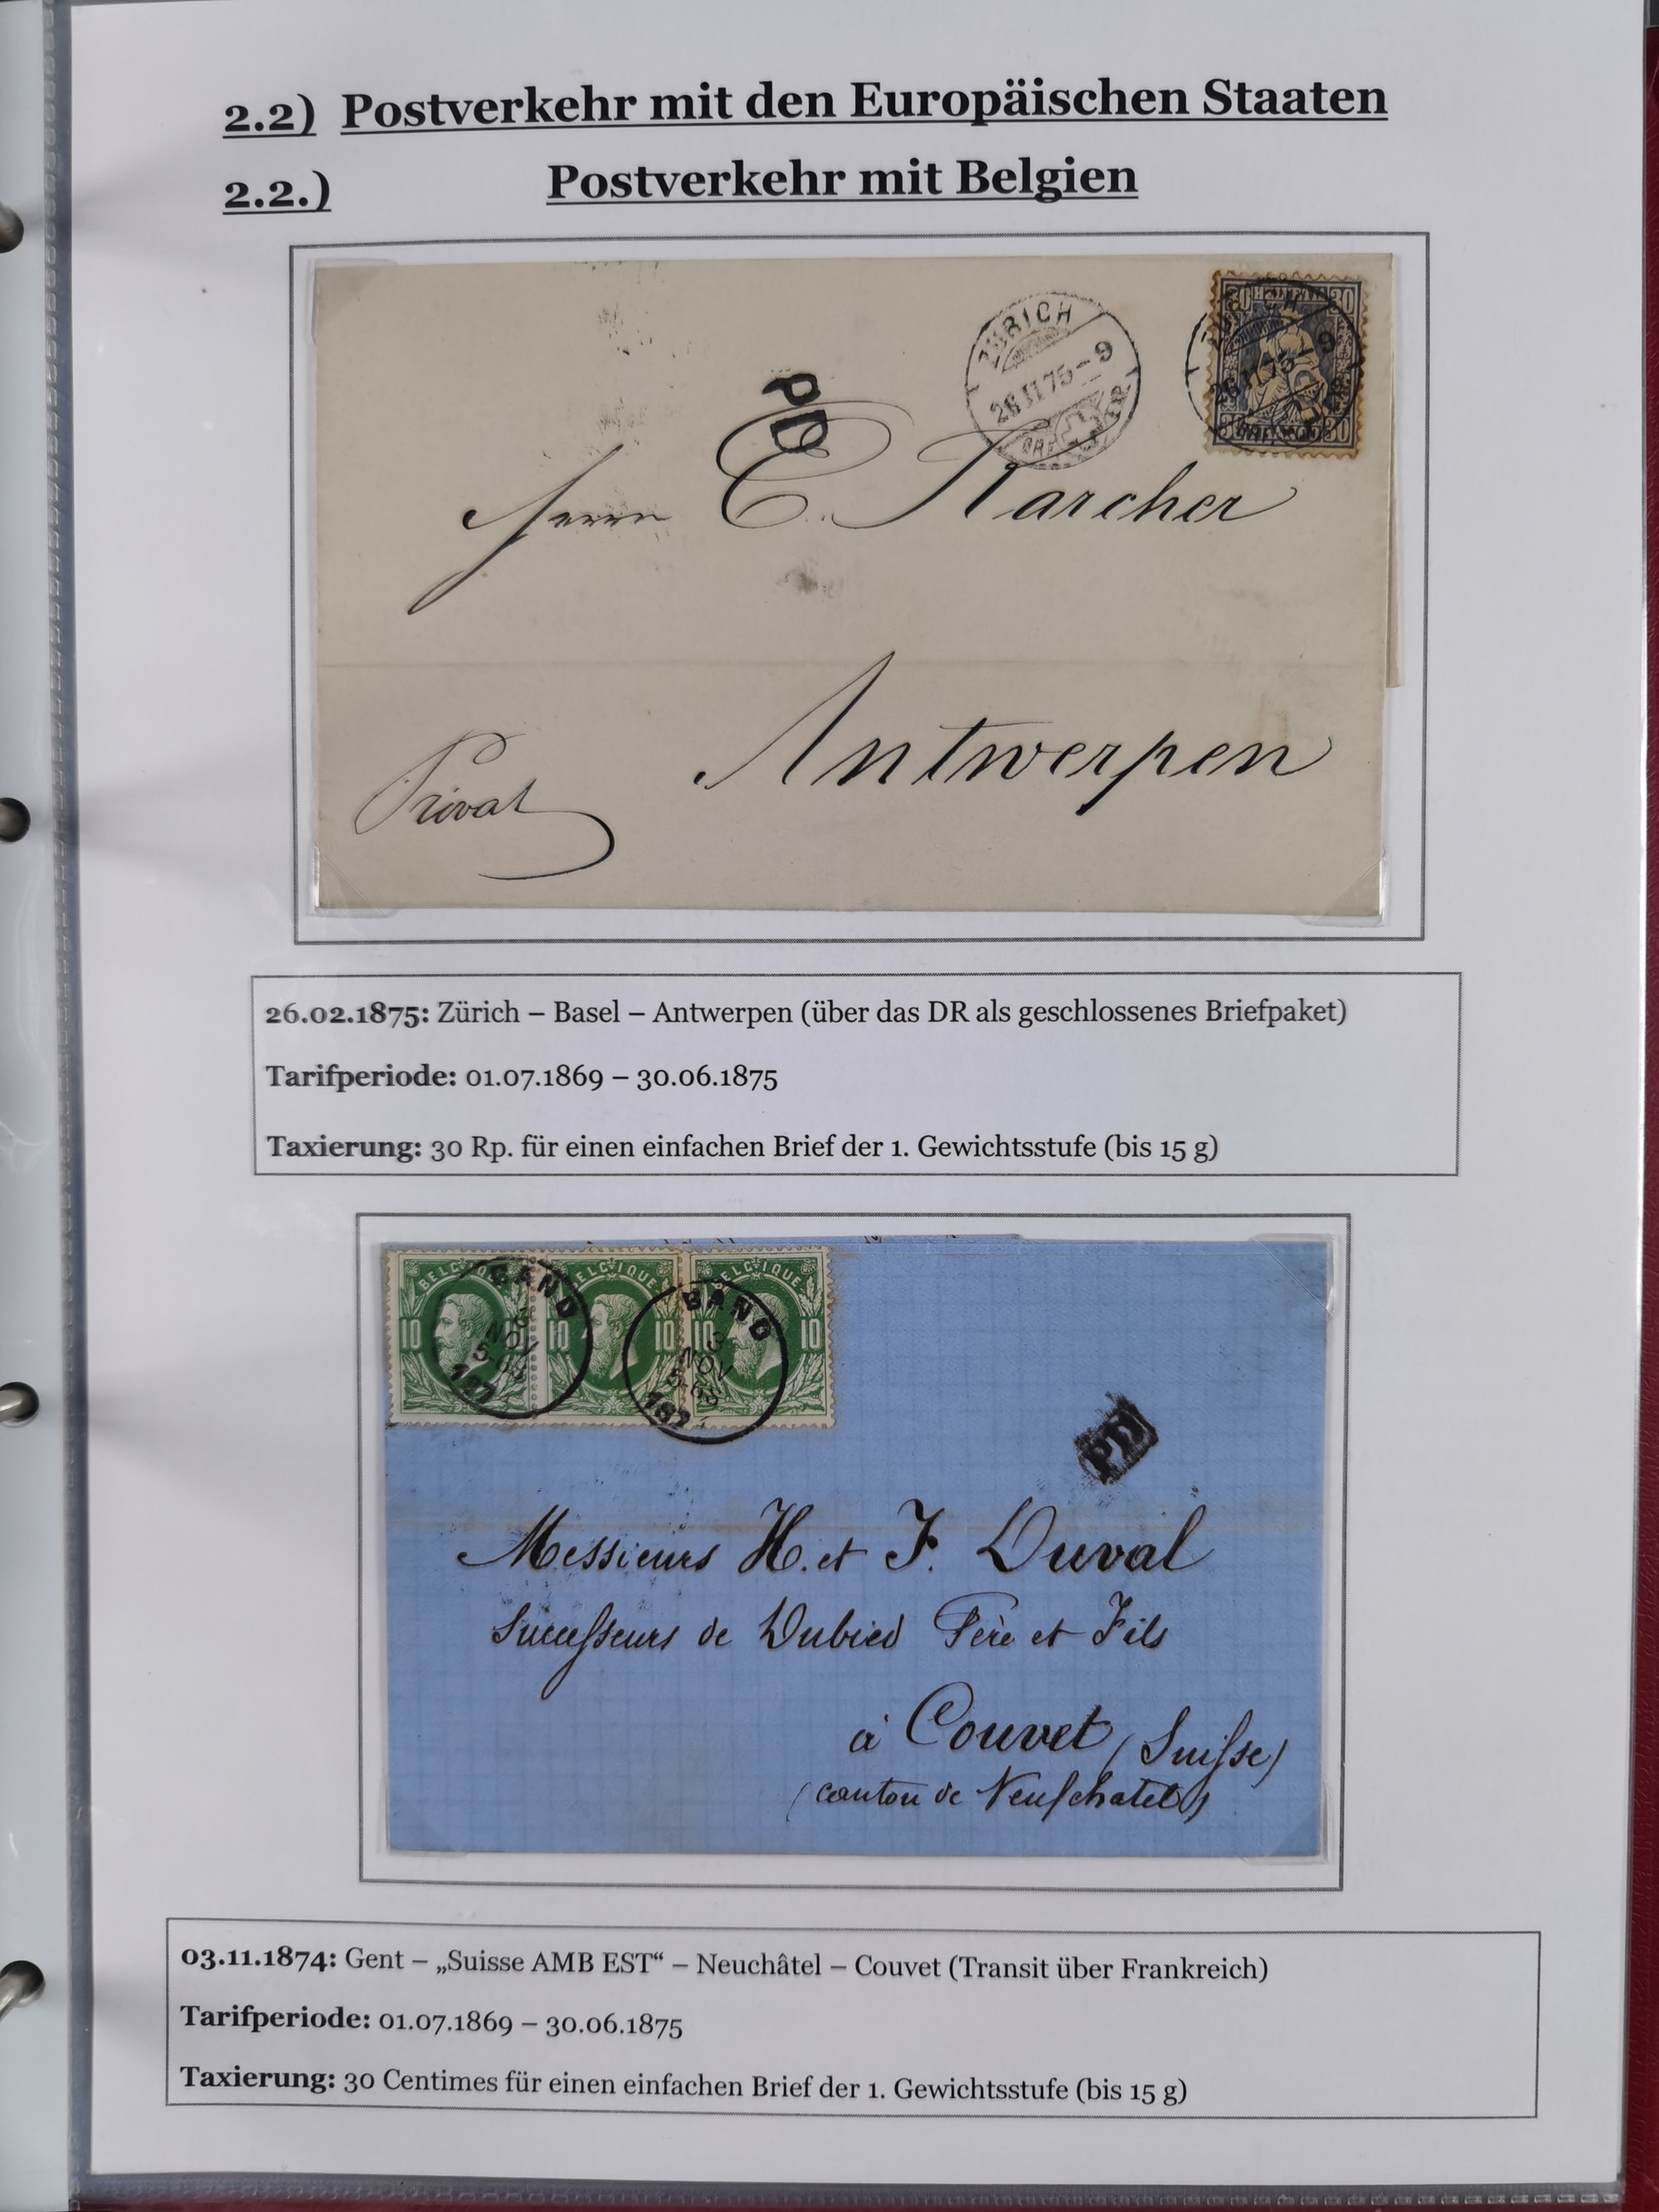 2.2) Postverkehr mit den Europäischen Staaten
2.2.) Postverkehr mit Belgien
30 HELVETIA 30
ZÜRICH
26 II 75 – 9
BRF
PD
Herrn E. Karcher
Antwerpen
Privat
26.02.1875: Zürich – Basel – Antwerpen (über das DR als geschlossenes Briefpaket)
Tarifperiode: 01.07.1869 – 30.06.1875
Taxierung: 30 Rp. für einen einfachen Brief der 1. Gewichtsstufe (bis 15 g)
BELGIQUE BELGIQUE BELGIQUE
10 10 10 10 10
GAND
3
NOV
5-6S
187
GAND
3
NOV
5-6S
187
PD
Messieurs H. et F. Duval
Successeurs de Dubied Père et Fils
à Couvet (Suisse)
(canton de Neufchatel)
03.11.1874: Gent – „Suisse AMB EST“ – Neuchâtel – Couvet (Transit über Frankreich)
Tarifperiode: 01.07.1869 – 30.06.1875
Taxierung: 30 Centimes für einen einfachen Brief der 1. Gewichtsstufe (bis 15 g)